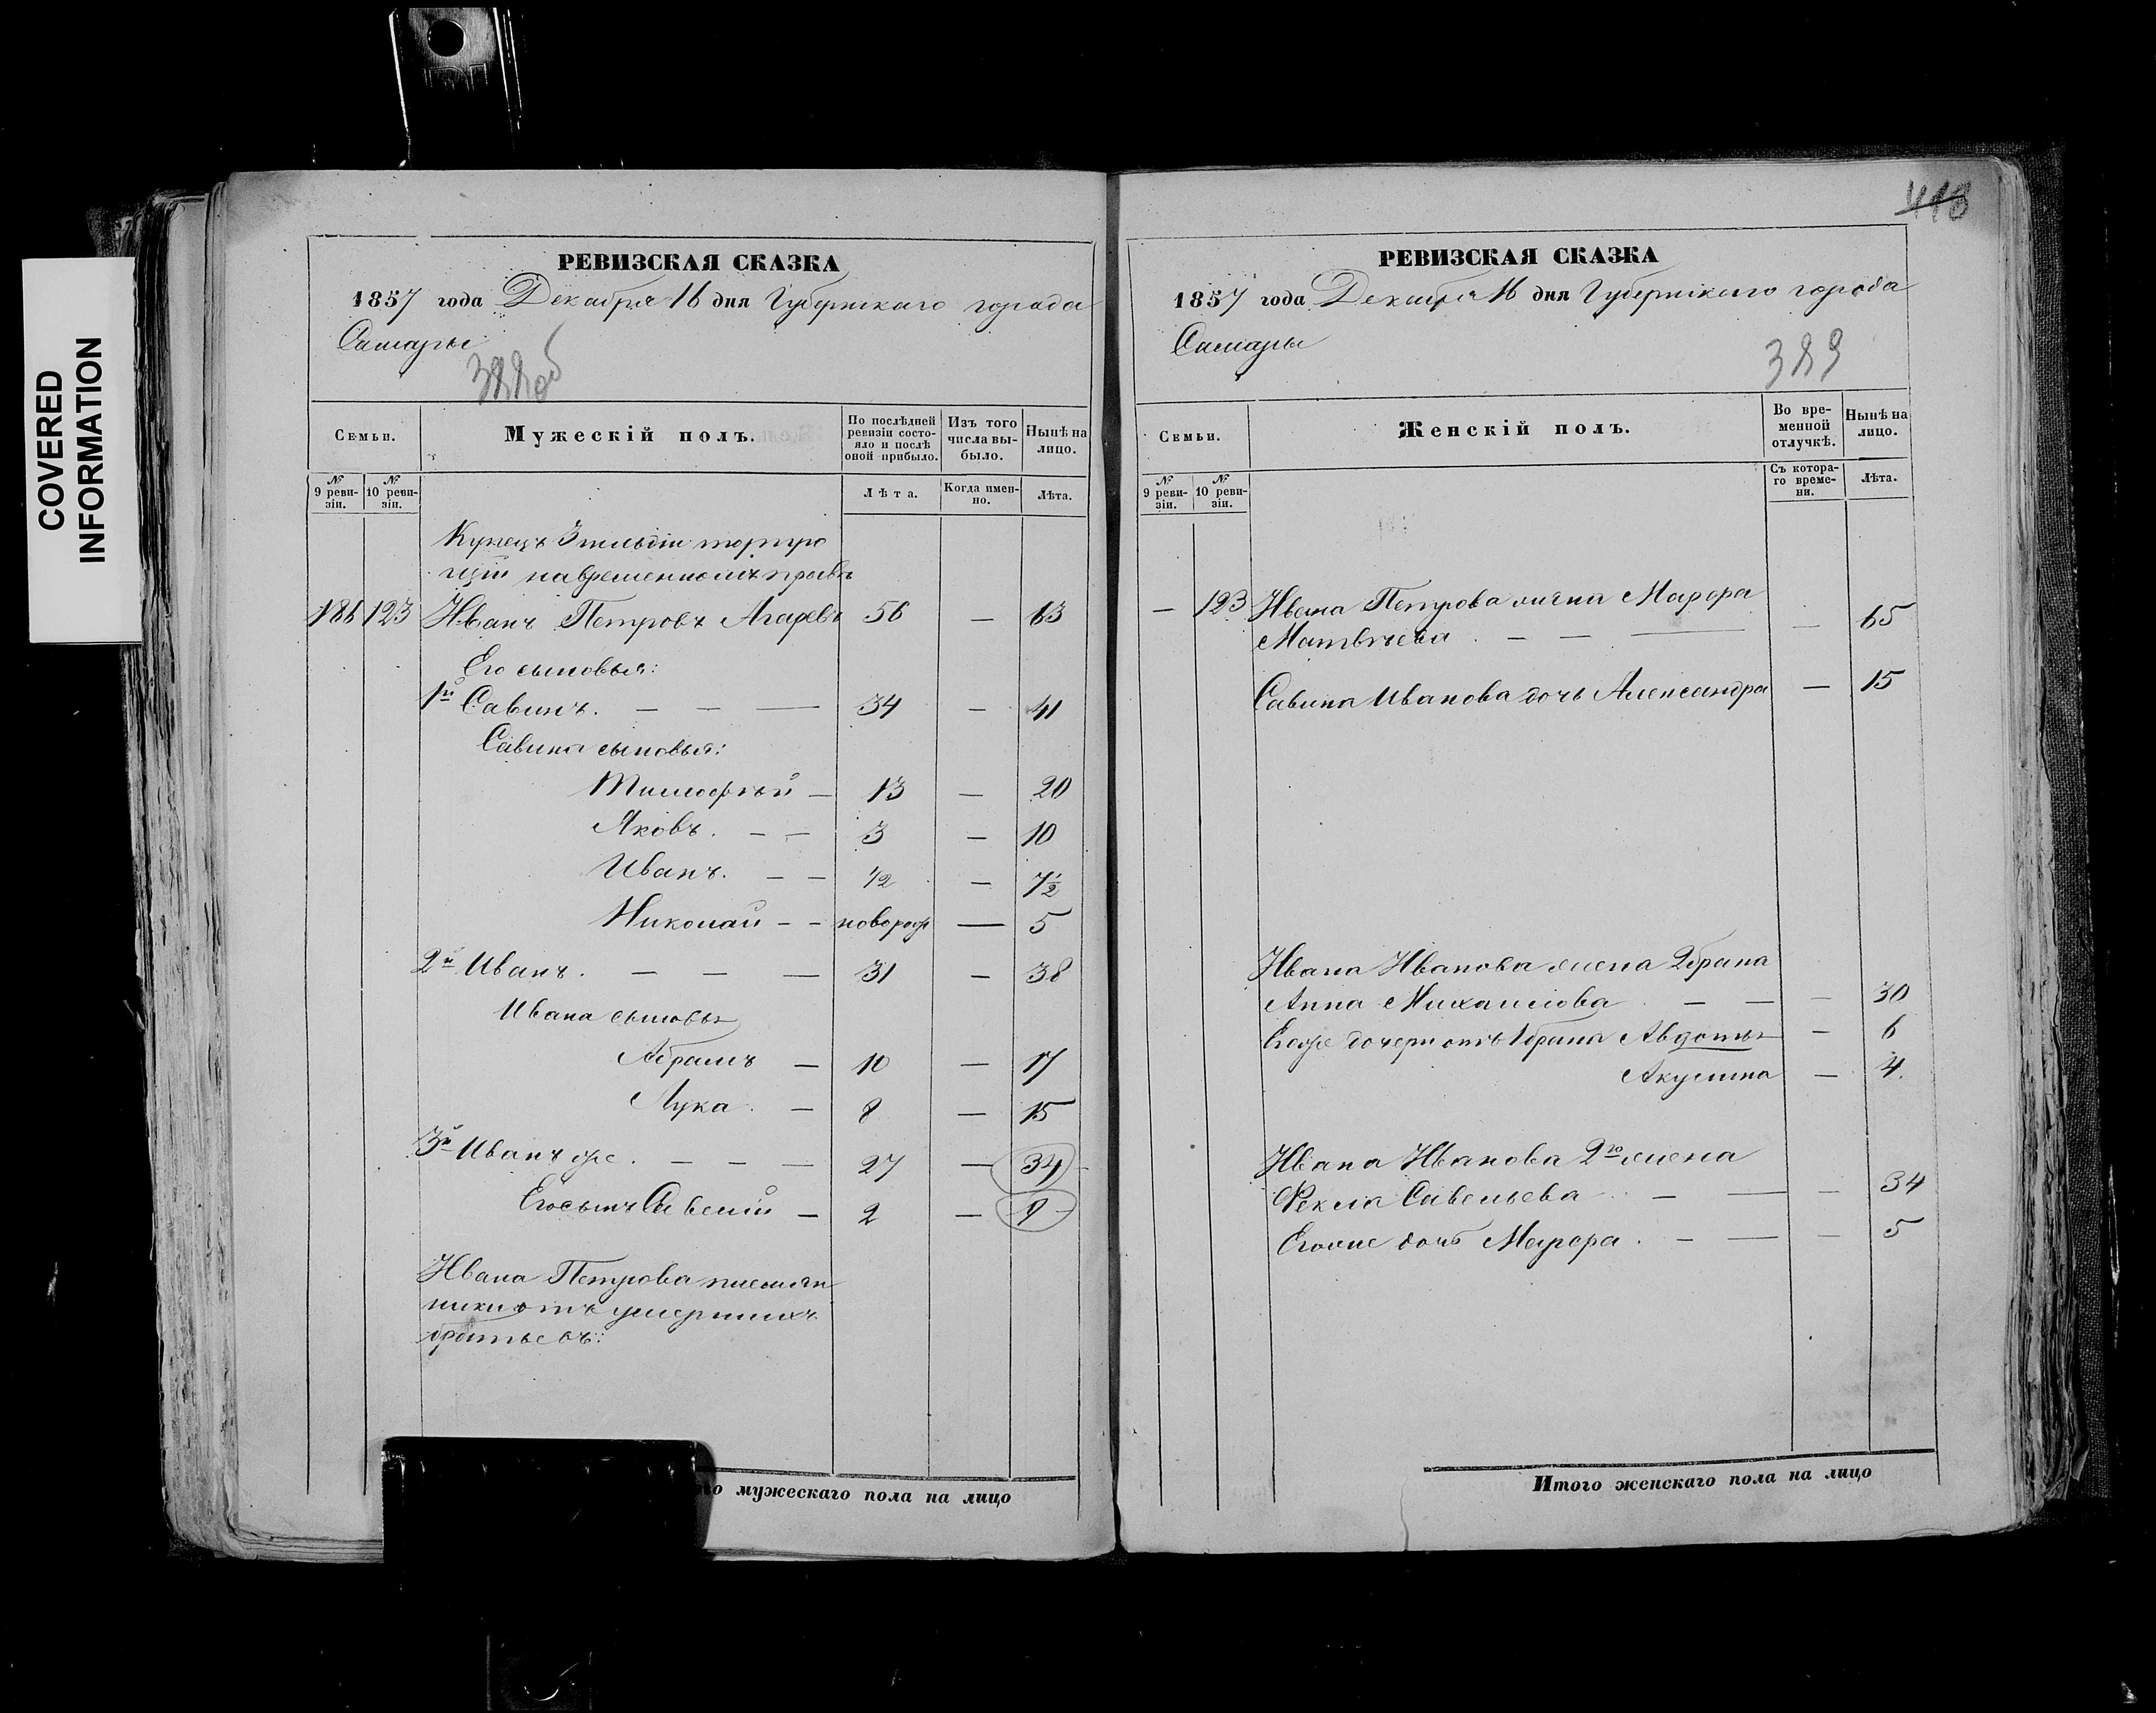 COVERED
INFORMATION
РЕВИЗСКАЯ СКАЗКА
1857 года Декабря 16 дня Губернскаго города
Самары
388об
Семьи.
Мужескій полъ.
По послѣдней ревизіи состояло и послѣ оной прибыло.
Изъ того числа выбыло.
Нынѣ на лицо.
№ 9 ревизіи.
№ 10 ревизіи.
Лѣта.
Когда именно.
Лѣта.
Купецъ 3 гильдіи торгую
щій на временномъ правѣ
186 123 Иванъ Петровъ Агаревъ 56 — 63
Его сыновья:
1й Савинъ. — — — 34 — 41
Савина сыновья:
Тимофѣй — 13 — 20
Яковъ. — — 3 — 10
Иванъ. — — 1/2 — 7 1/2
Николай — — новорож — 5
2й Иванъ. — — — 31 — 38
Ивана сыновья
Абрамъ — 10 — 17
Лука. — 8 — 15
3й Иванъ же. — — — 27 — 34
Его сынъ Савелій — 2 — 9
Ивана Петрова племян
ники отъ умершихъ
братьевъ:
мужескаго пола на лицо
418
РЕВИЗСКАЯ СКАЗКА
1857 года Декабря 16 дня Губернскаго города
Самары
389
Семьи.
Женскій полъ.
Во временной отлучкѣ.
Нынѣ на лицо.
№ 9 ревизіи.
№ 10 ревизіи.
Съ котораго времени.
Лѣта.
— 123 Ивана Петрова жена Марфа
Матвѣева. — — — — 65
Савина Иванова дочь Александра — 15
Ивана Иванова жена 2 брака
Анна Михайлова. — — — 30
Его же дочери отъ 1 брака Авдотья — 6
Акулина — 4.
Ивана Иванова 2го жена
Фекла Савельева. — — — 34
Его же дочь Марфа. — — — 5
Итого женскаго пола на лицо